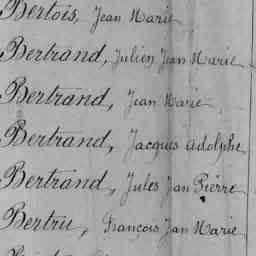 Bertois, Jean Marie
Bertrand, Julien Jean Marie
Bertrand, Jean Marie
Bertrand, Jacques Adolphe
Bertrand, Jules Jean Pierre
Bertru, François Jean Marie